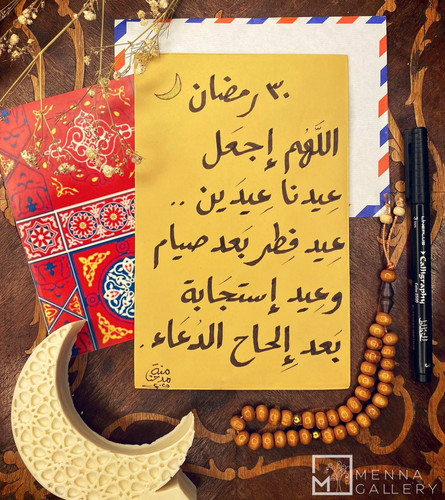 ٣٠ رمضان
اللَّهُم إجعَل
عِيدنا عِيدَين ..
عِيد فِطر بَعد صيام
وعِيد إستجَابة
بَعد إلحاح الدُعَاء.
منة
Calligraphy
MENNA
GALLERY